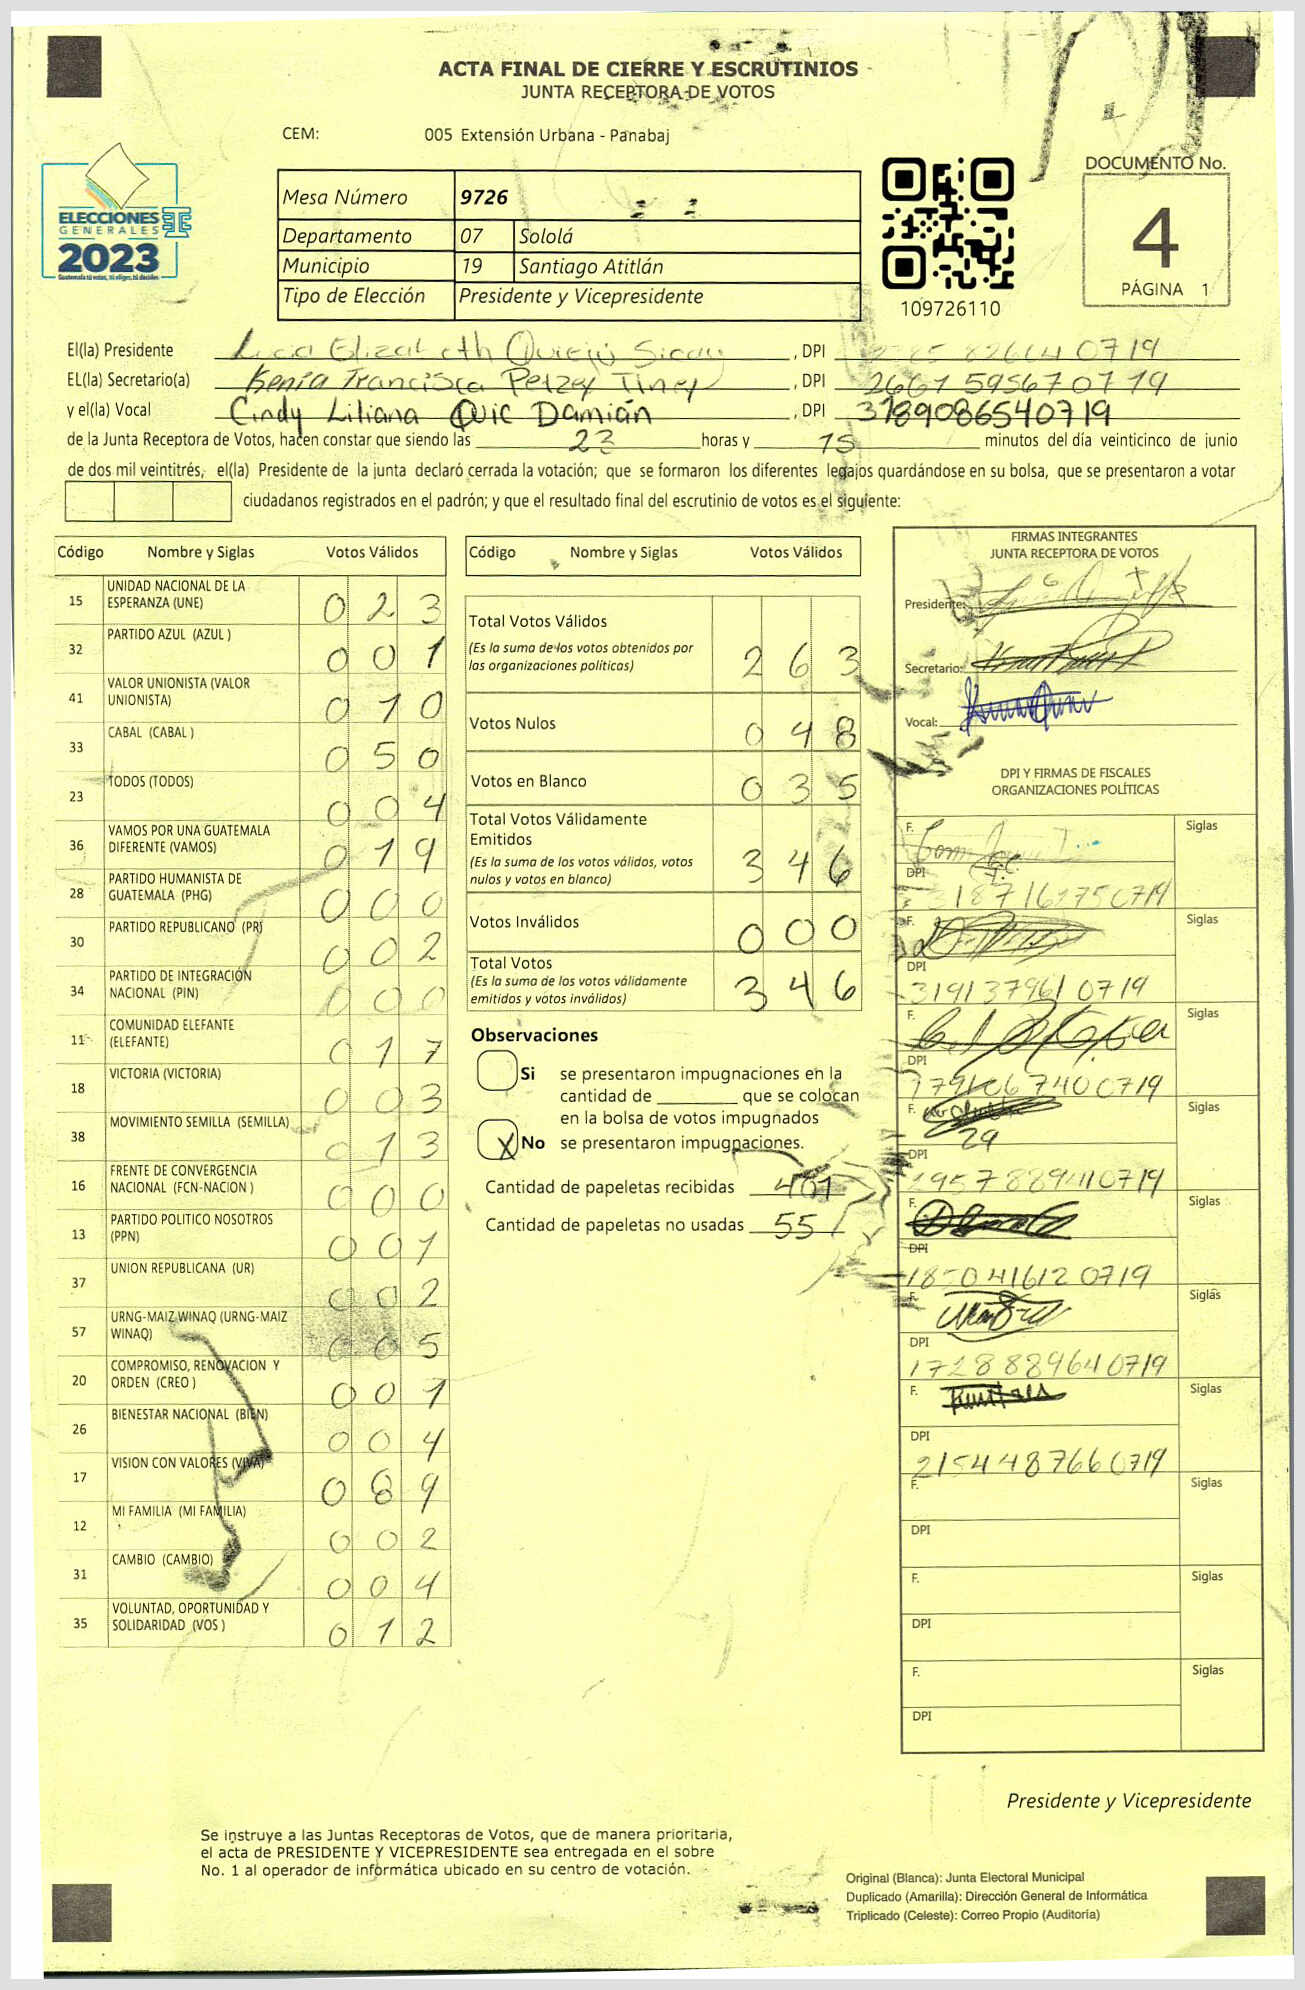 ACTA FINAL DE CIERRE Y ESCRUTINIOS
JUNTA RECEPTORA DE VOTOS
CEM: 005 Extensión Urbana - Panabaj
ELECCIONES
GENERALES
2023
Guatemala tú votas, tú eliges, tú decides
Mesa Número 9726
Departamento 07 Sololá
Municipio 19 Santiago Atitlán
Tipo de Elección Presidente y Vicepresidente
109726110
DOCUMENTO No.
4
PÁGINA 1
El(la) Presidente Elizabeth Quiejú Sicay, DPI 0719
EL(la) Secretario(a) Kenia Francisca Petzey Tiney, DPI 2667 59567 0719
y el(la) Vocal Cindy Liliana Quic Damián, DPI 3189086540719
de la Junta Receptora de Votos, hacen constar que siendo las 23 horas y 15 minutos del día veinticinco de junio
de dos mil veintitrés, el(la) Presidente de la junta declaró cerrada la votación; que se formaron los diferentes legajos quardándose en su bolsa, que se presentaron a votar
ciudadanos registrados en el padrón; y que el resultado final del escrutinio de votos es el siguiente:
Código Nombre y Siglas Votos Válidos
15 UNIDAD NACIONAL DE LA ESPERANZA (UNE) 0 2 3
32 PARTIDO AZUL (AZUL ) 0 0 1
41 VALOR UNIONISTA (VALOR UNIONISTA) 0 1 0
33 CABAL (CABAL ) 0 5 0
23 TODOS (TODOS) 0 0 4
36 VAMOS POR UNA GUATEMALA DIFERENTE (VAMOS) 0 1 9
28 PARTIDO HUMANISTA DE GUATEMALA (PHG) 0 0 0
30 PARTIDO REPUBLICANO (PR) 0 0 2
34 PARTIDO DE INTEGRACIÓN NACIONAL (PIN) 0 0 0
11 COMUNIDAD ELEFANTE (ELEFANTE) 0 1 7
18 VICTORIA (VICTORIA) 0 0 3
38 MOVIMIENTO SEMILLA (SEMILLA) 0 1 3
16 FRENTE DE CONVERGENCIA NACIONAL (FCN-NACION ) 0 0 0
13 PARTIDO POLITICO NOSOTROS (PPN) 0 0 1
37 UNION REPUBLICANA (UR) 0 0 2
57 URNG-MAIZ WINAQ (URNG-MAIZ WINAQ) 0 0 5
20 COMPROMISO, RENOVACION Y ORDEN (CREO ) 0 0 1
26 BIENESTAR NACIONAL (BIEN) 0 0 4
17 VISION CON VALORES (VIVA) 0 8 9
12 MI FAMILIA (MI FAMILIA) 0 0 2
31 CAMBIO (CAMBIO) 0 0 4
35 VOLUNTAD, OPORTUNIDAD Y SOLIDARIDAD (VOS ) 0 1 2
Código Nombre y Siglas Votos Válidos
Total Votos Válidos 2 6 3
(Es la suma de los votos obtenidos por
las organizaciones políticas)
Votos Nulos 0 4 8
Votos en Blanco 0 3 5
Total Votos Válidamente
Emitidos 3 4 6
(Es la suma de los votos válidos, votos
nulos y votos en blanco)
Votos Inválidos 0 0 0
Total Votos 3 4 6
(Es la suma de los votos válidamente
emitidos y votos inválidos)
Observaciones
Si se presentaron impugnaciones en la
cantidad de ________ que se colocan
en la bolsa de votos impugnados
X No se presentaron impugnaciones.
Cantidad de papeletas recibidas 401
Cantidad de papeletas no usadas 55
FIRMAS INTEGRANTES
JUNTA RECEPTORA DE VOTOS
Presidente:
Secretario:
Vocal:
DPI Y FIRMAS DE FISCALES
ORGANIZACIONES POLÍTICAS
F. Siglas
DPI 3187162750719
F. Siglas
DPI 3191379610719
F. Siglas
DPI 1791067400719
F. Siglas
DPI 1957889410719
F. Siglas
DPI 1850416120719
F. Siglas
DPI 1728889640719
F. Siglas
DPI 2154487660719
F. Siglas
DPI
F. Siglas
DPI
F. Siglas
DPI
Presidente y Vicepresidente
Se instruye a las Juntas Receptoras de Votos, que de manera prioritaria,
el acta de PRESIDENTE Y VICEPRESIDENTE sea entregada en el sobre
No. 1 al operador de informática ubicado en su centro de votación.
Original (Blanca): Junta Electoral Municipal
Duplicado (Amarilla): Dirección General de Informática
Triplicado (Celeste): Correo Propio (Auditoría)